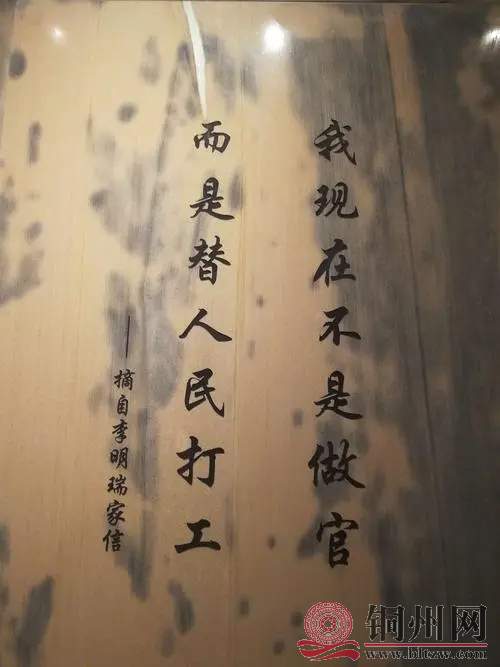 我现在不是做官
而是替人民打工
——摘自李明瑞家信
铜州网
www.hltzw.com